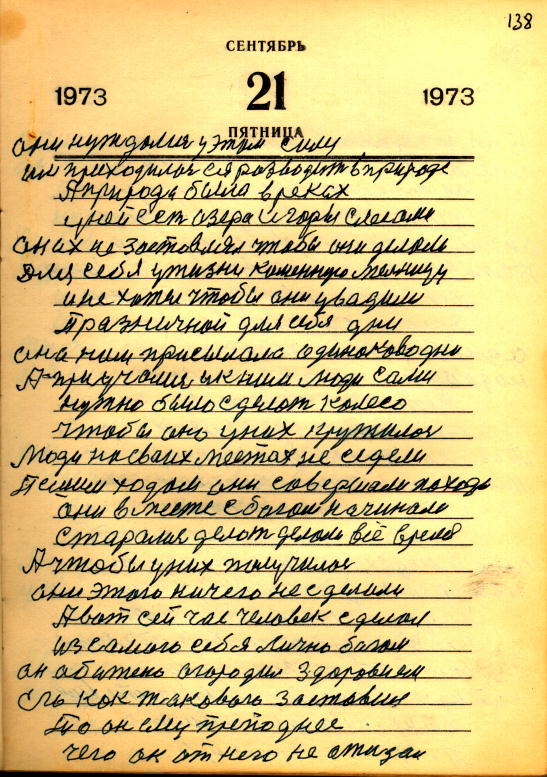 138
СЕНТЯБРЬ
1973 21 1973
ПЯТНИЦА
они нуждолися у этом силу
им приходилос ся разводит в природе
А природа была в реках
у ней ест озера и горы слесами
он их не заставлял чтобы они делоли
для себя у жизни каменную
и не хотел чтобы они увадили
празничной для себя дни
она ним присылала одиноково дни
А приучали ик ним люди сами
нужно было сделат колесо
чтобы оно у них крутилос
Люди на своих местах не седели
Пешим ходом они совершали походы
они вместе с богом начинали
старалис делат делали всё время
А чтобы у них получилос
они этого ничего не сделали
А вот сей час человек сделал
из самого себя лично богом
он обижено огородил здоровием
ег как такового заставил
То он ему преподнес
чего он от него не ожидал